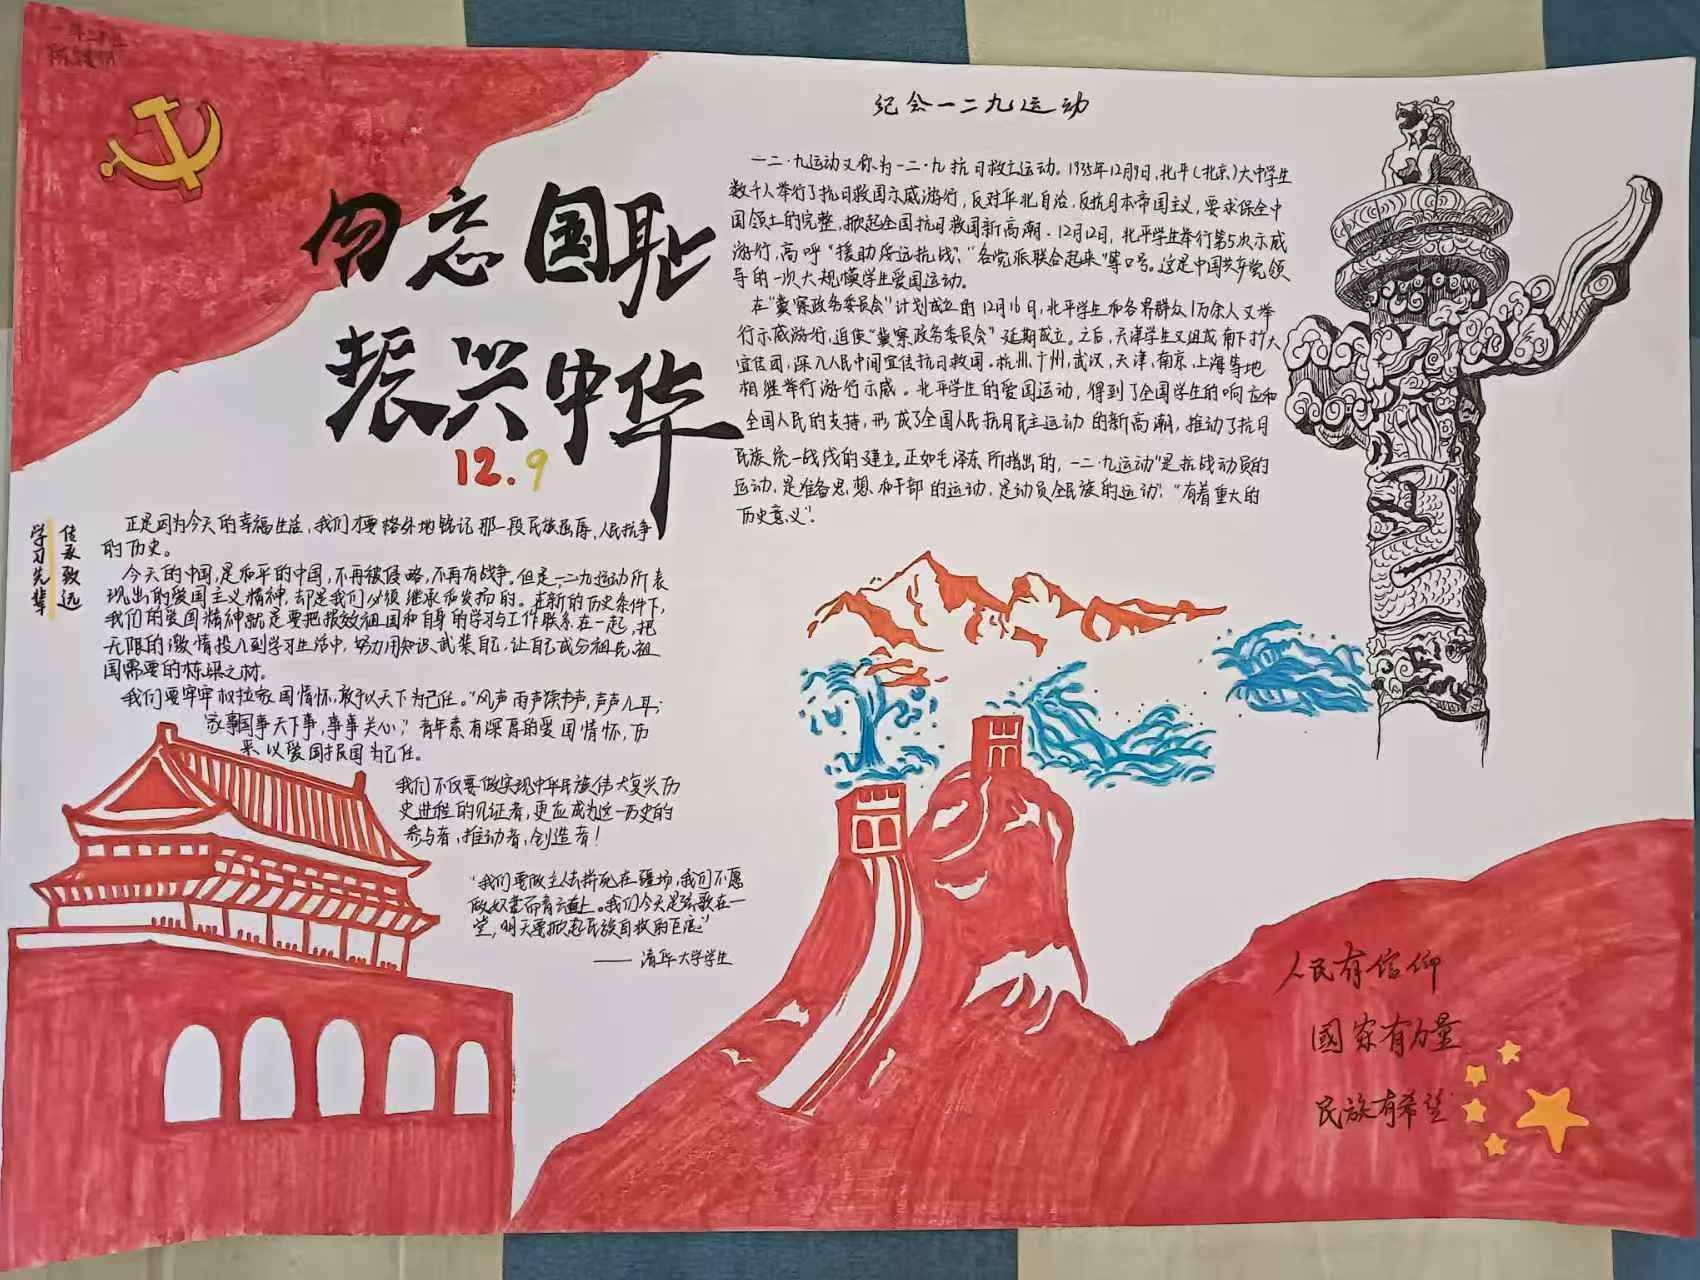 勿忘国耻
振兴中华
12.9
纪念一二九运动
一二·九运动又称为一二·九抗日救亡运动。1935年12月9日,北平(北京)大中学生
数千人举行了抗日救国示威游行,反对华北自治,反抗日本帝国主义,要求保全中
国领土的完整,掀起全国抗日救国新高潮.12月12日,北平学生举行第5次示威
游行,高呼“援助绥远抗战”,“各党派联合起来”等口号。这是中国共产党领
导的一次大规模学生爱国运动。
在“冀察政务委员会”计划成立的12月16日,北平学生和各界群众1万余人又举
行示威游行,迫使“冀察政务委员会”延期成立。之后,天津学生又组成南下扩大
宣传团,深入人民中间宣传抗日救国。杭州,广州,武汉,天津,南京,上海等地
相继举行游行示威。北平学生的爱国运动,得到了全国学生的响应和
全国人民的支持,形成了全国人民抗日民主运动的新高潮,推动了抗日
民族统一战线的建立。正如毛泽东所指出的,一二·九运动“是抗战动员的
运动,是准备思想和干部的运动,是动员全民族的运动”,“有着重大的
历史意义”.
学习先辈
传承致远
正是因为今天的幸福生活,我们才要格外地铭记那一段民族屈辱,人民抗争
的历史。
今天的中国,是和平的中国,不再被侵略,不再有战争。但是,一二九运动所表
现出的爱国主义精神,却是我们必须继承和发扬的。在新的历史条件下,
我们的爱国精神就是要把报效祖国和自身的学习与工作联系在一起,把
无限的激情投入到学习生活中,努力用知识武装自己,让自己成为祖国
国需要的栋梁之材。
我们要牢牢树立家国情怀,敢于以天下为己任。“风声雨声读书声,声声入耳;
家事国事天下事,事事关心,”青年素有深厚的爱国情怀,历
来以爱国报国为己任。
我们不仅要做实现中华民族伟大复兴历
史进程的见证者,更应成为这一历史的
参与者,推动者,创造者!
“我们要做主人去拼死在疆场,我们不愿
做奴隶而青云直上。我们今天是弦歌在一
堂,明天要掀起民族自救的巨浪”
——清华大学学生
人民有信仰
國家有力量
民族有希望